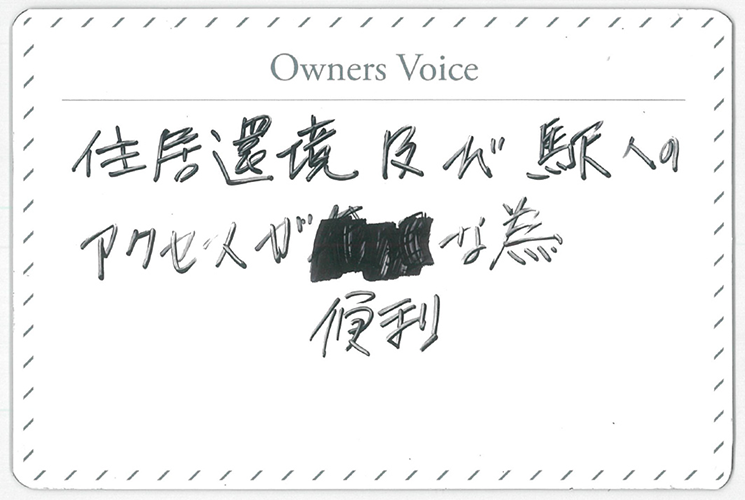 Owners Voice
住居還境及び駅への
アクセスが な為
便利